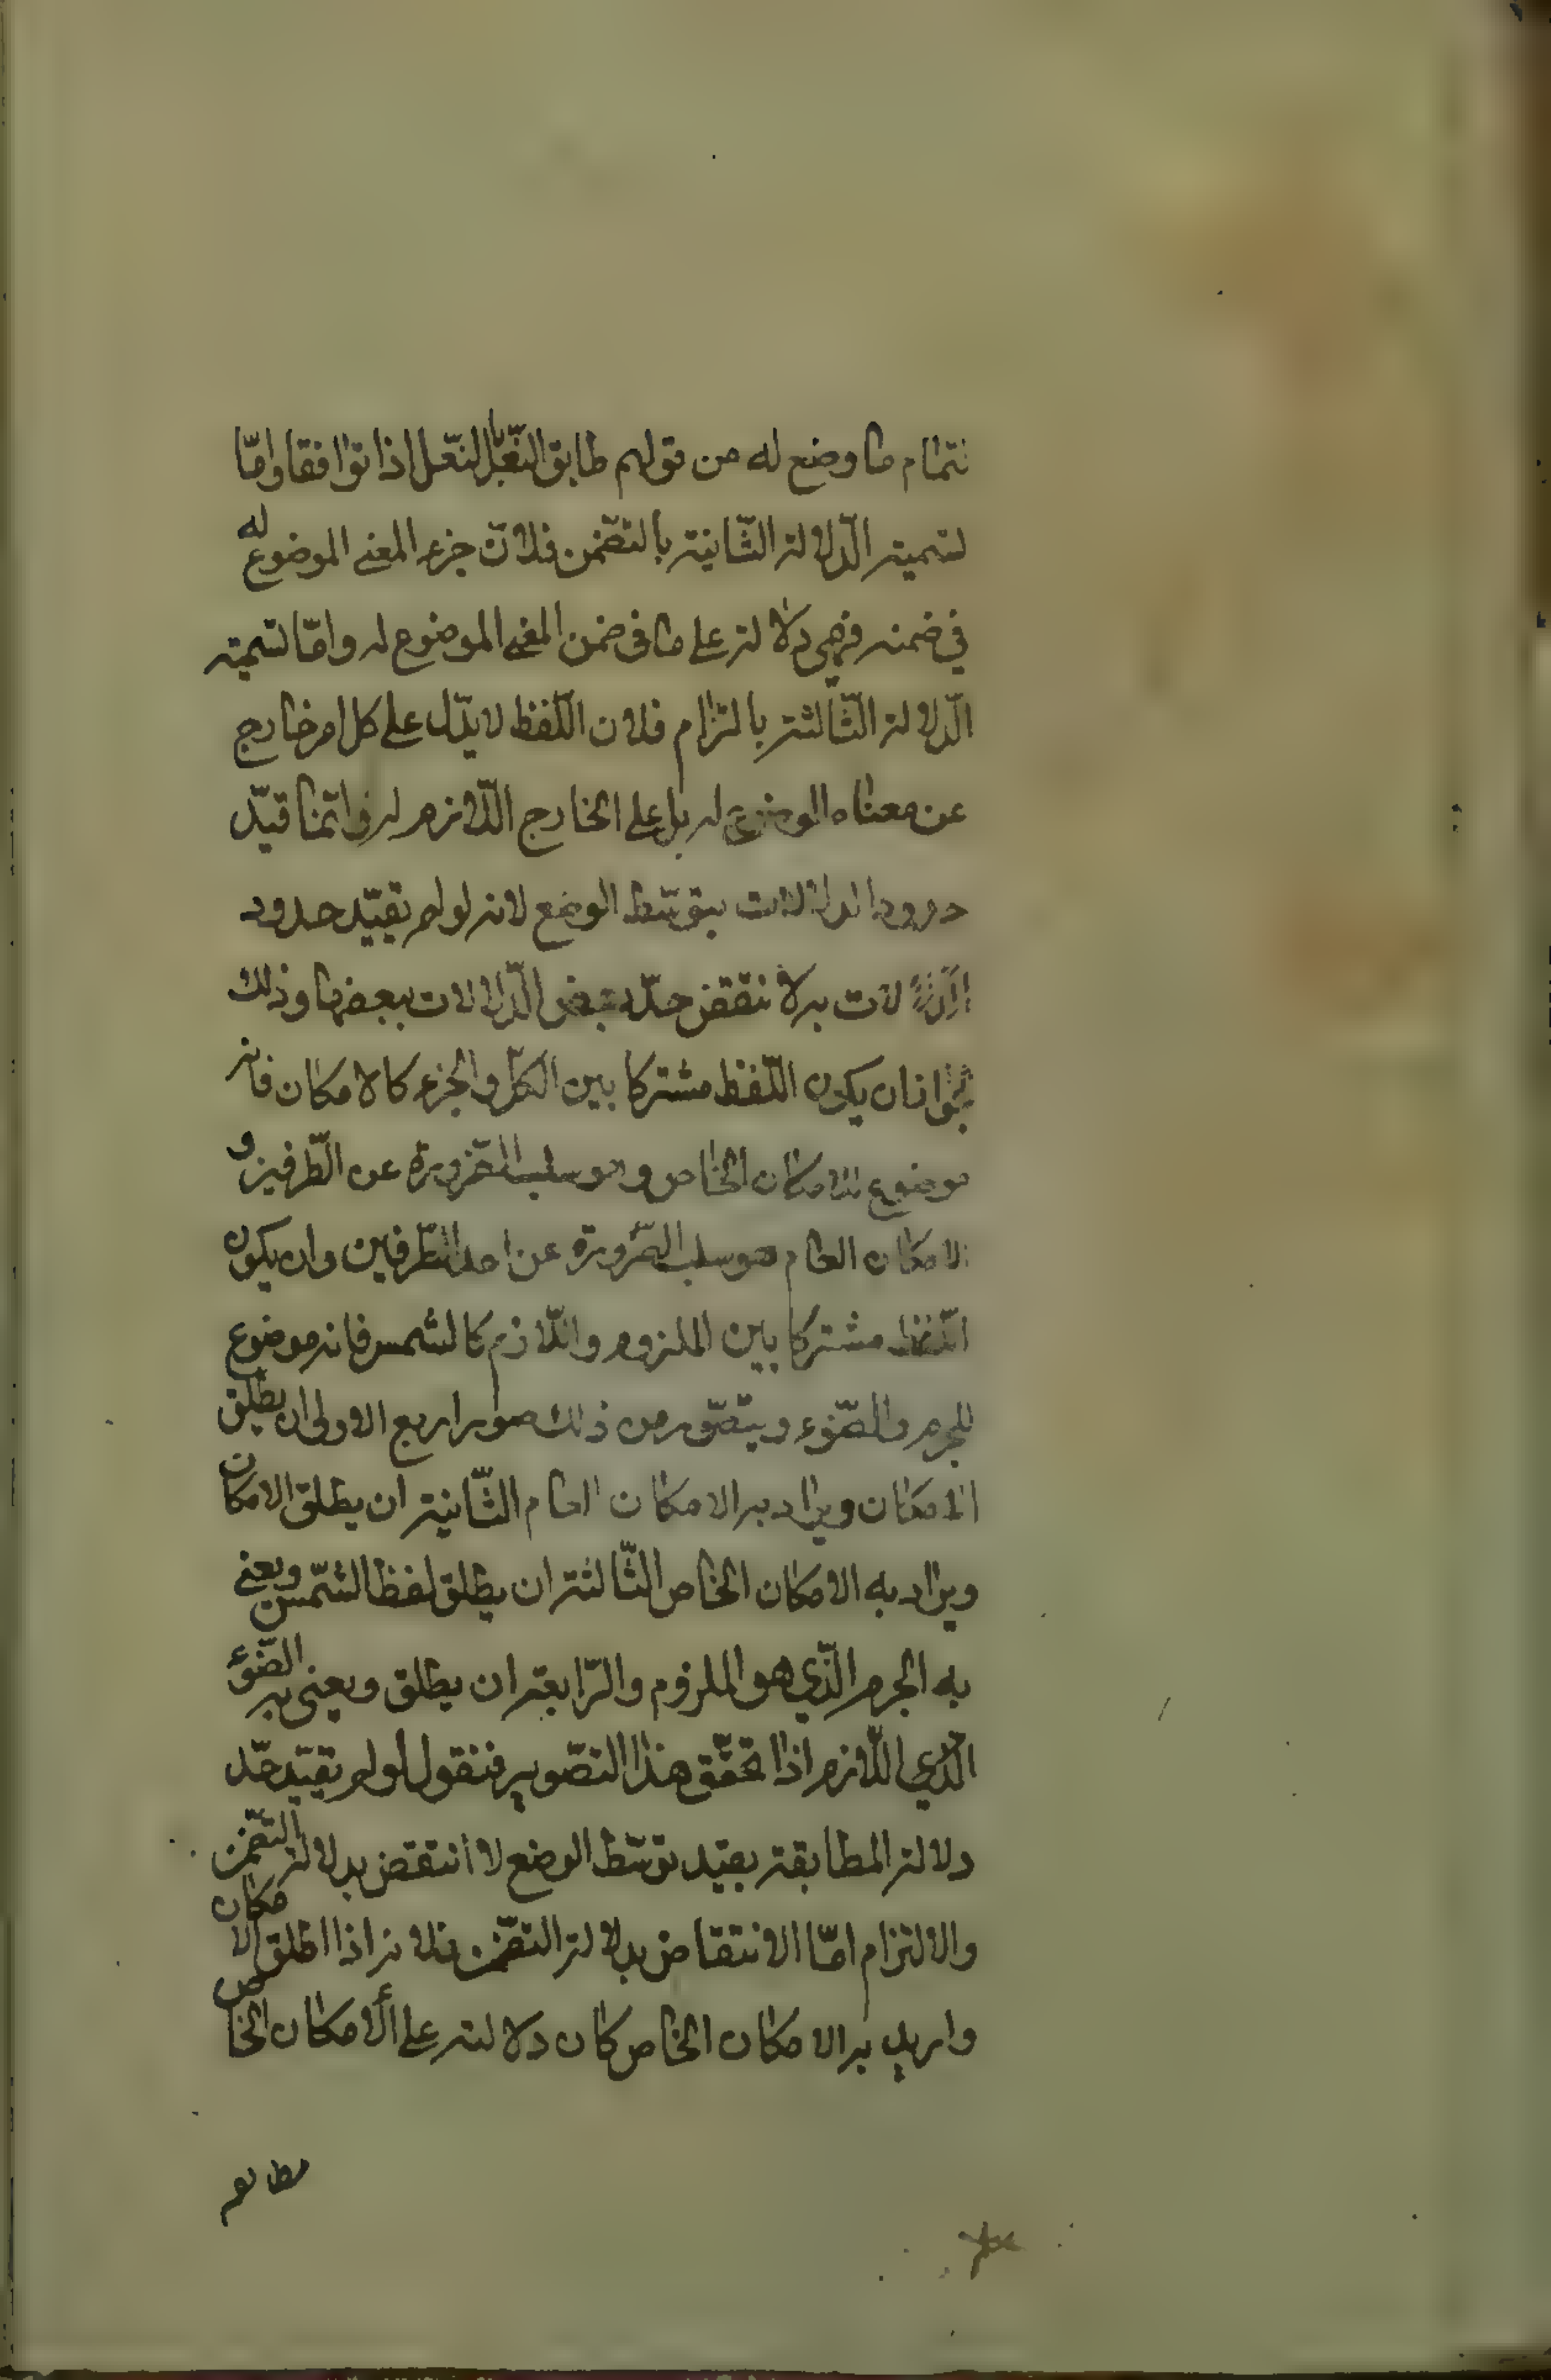 لتمام ما وضع له من قولهم طابق النّعل النّعل اذا توافقا وامّا
تسمية الدّلالة الثّانية بالتضّمن فلانّ جزء المعنى الموضوع له
في ضمنه فهي دلالة على ما في ضمن المعنى الموضوع له وامّا تسمية
الدّلالة الثّالثة بالتزام فلان اللّفظ لا يدّل على كل امر خارج
عن معناه الموضوع له بل على الخارج اللّازم له وانّما قيّد
حدود الدلالات بتوسّط الوضع لانه لو لم يقيّد حدود
الدّلالات به لانتقض حدّ بعض الدّلالات ببعضها وذلك
لجواز ان يكون اللّفظ مشتركا بين الكلّ والجزء كالامكان فانه
موضوع للامكان الخاص وهو سلب الضّرورة عن الطّرفين و
الامكان العام هو سلب الضّرورة عن احد الطّرفين وان يكون
اللّفظ مشتركا بين الملزوم واللّازم كالشمس فانه موضوع
للجرم والضّوء ويتصّور من ذلك صور اربع الاولى ان يطلق
الامكان ويراد به الامكان العام الثّانية ان يطلق الامكان
ويراد به الامكان الخاص الثّالثة ان يطلق لفظ الشّمس ويعنى
به الجرم الّذي هو الملزوم والرّابعة ان يطلق ويعنى به الضّوء
الّذي اللّازم اذا تحقّق هذا التصّوير فنقول لو لم يقيّد حّد
دلالة المطابقة بقيد توسّط الوضع لانتقض بدلالة التضّمن
والالتزام امّا الانتقاض بدلالة التضّمن فلانه اذا اطلق الامكان
واريد به الامكان الخاص كان دلالته على الامكان الخاص